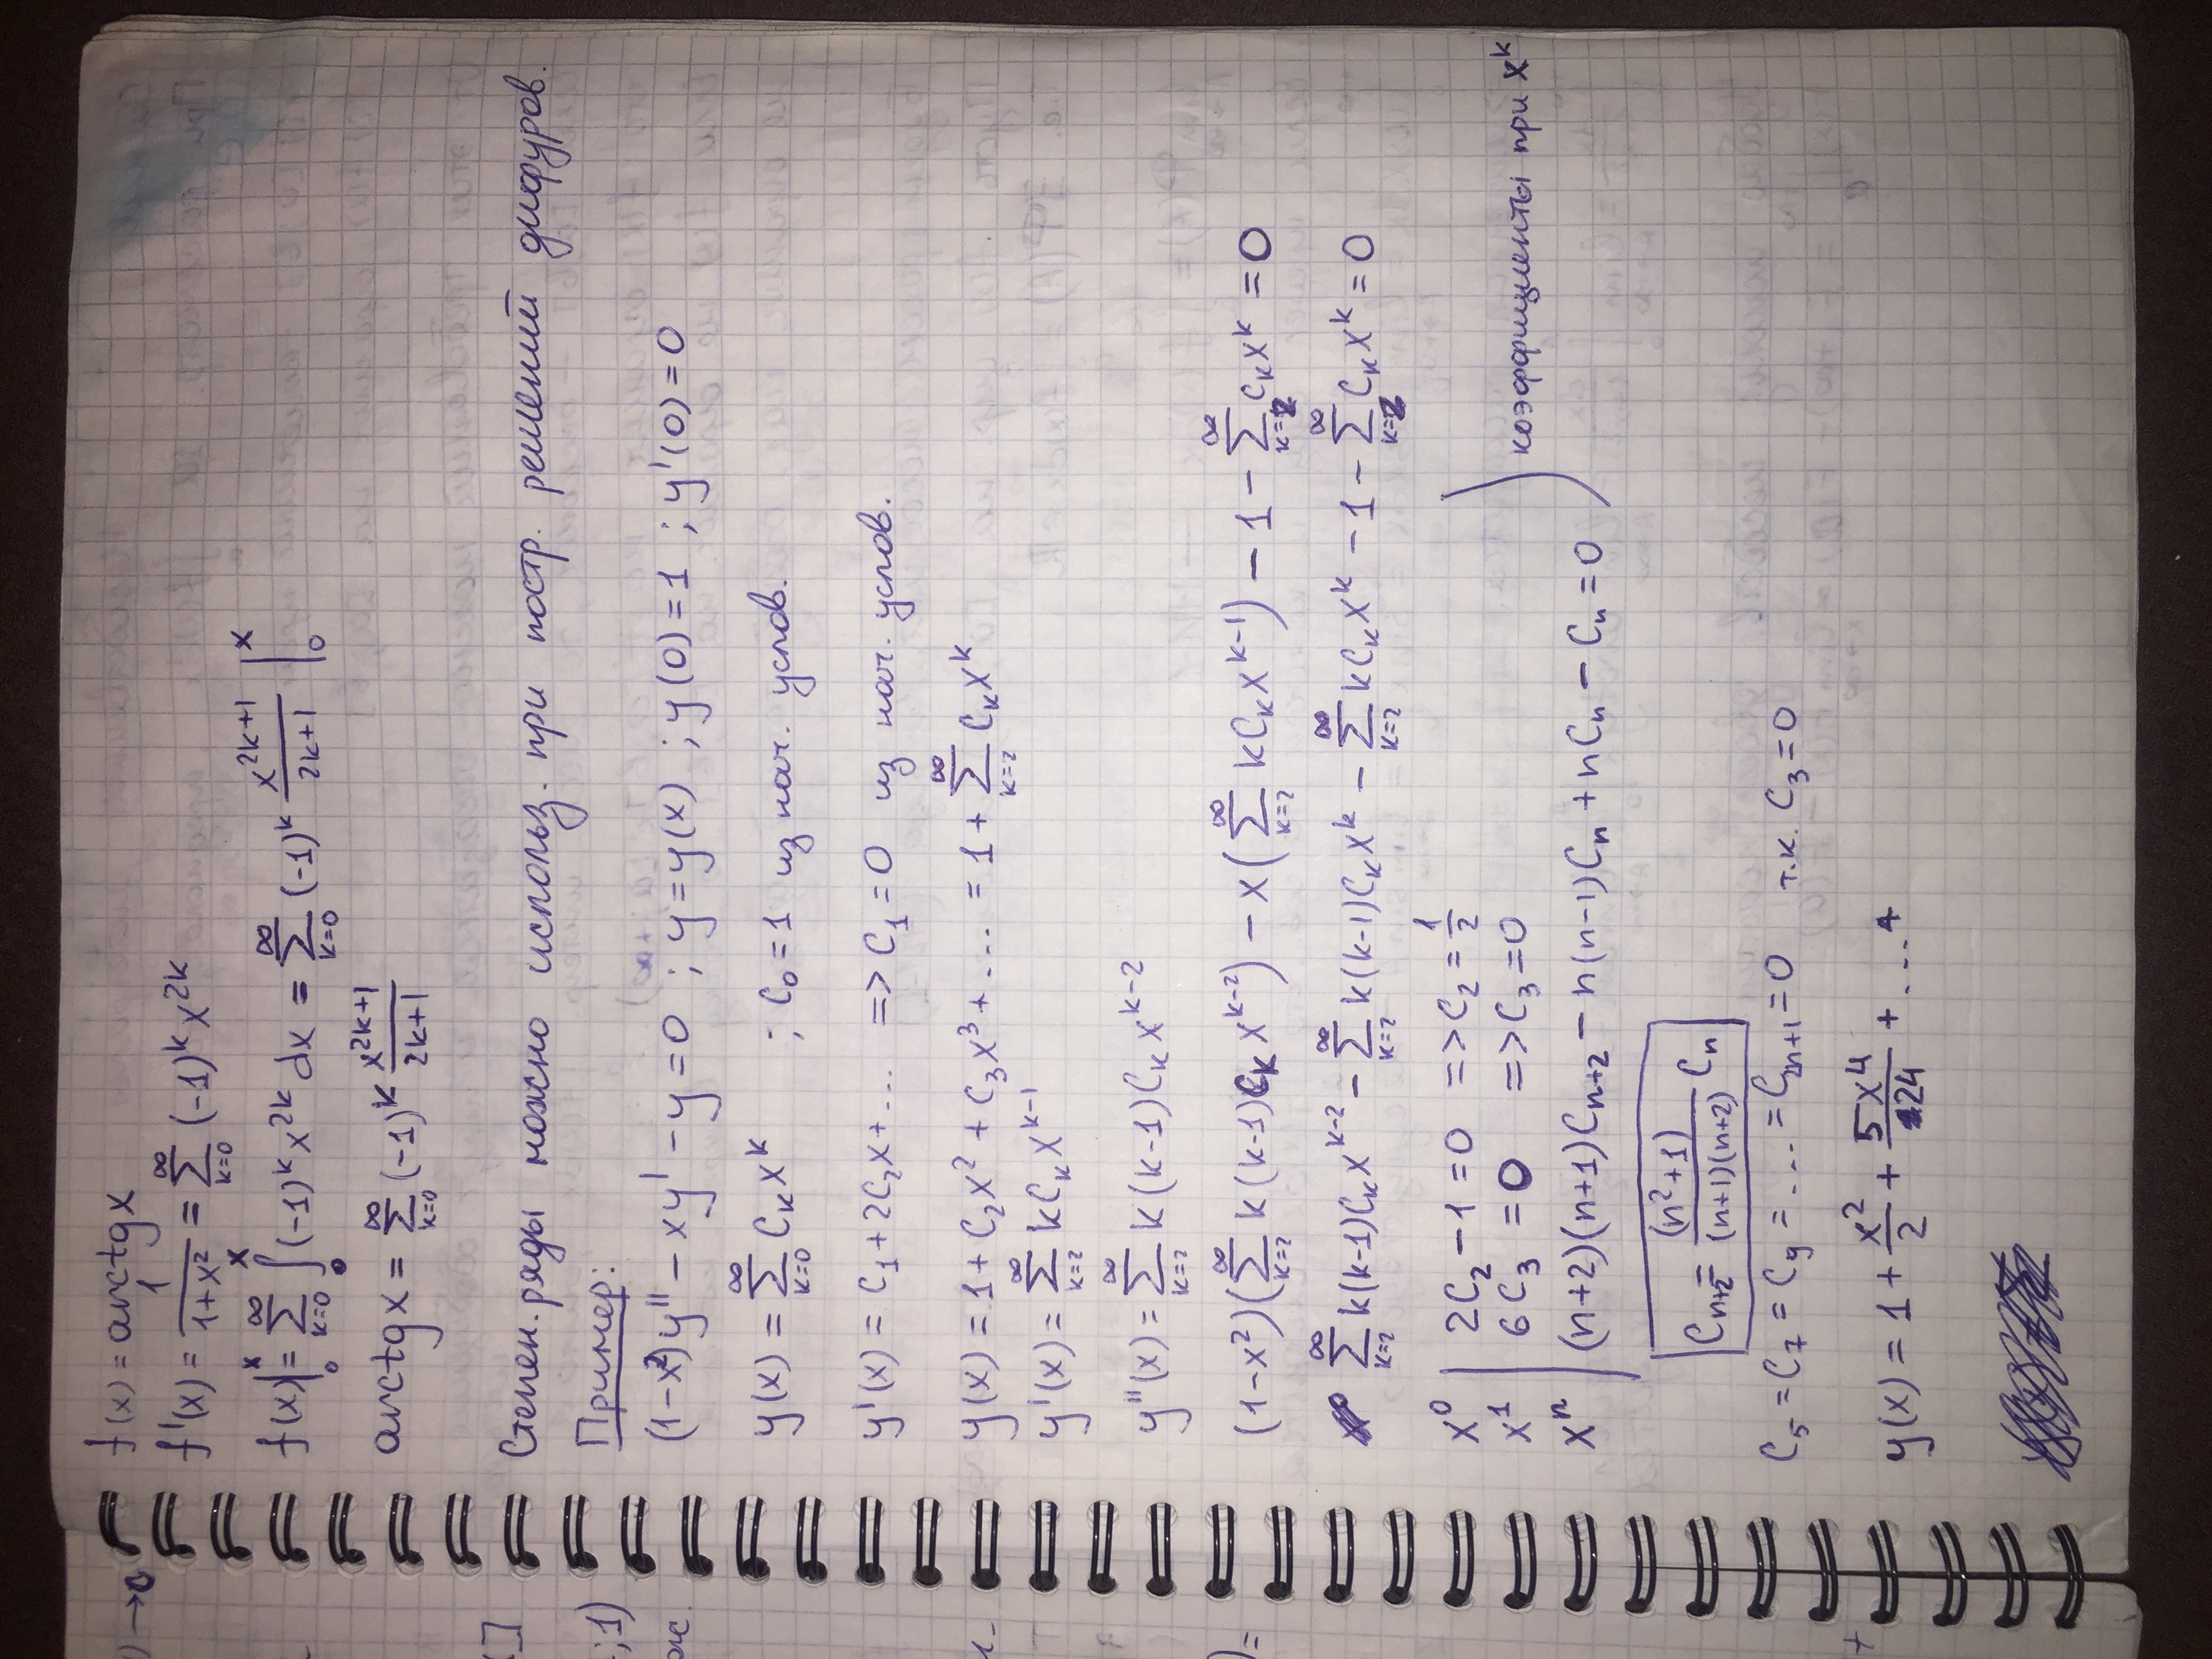 f(x) = arctgx
f'(x) = 1/(1+x²) = ∑_{k=0}^{∞} (-1)^k x^{2k}
f(x)|_0^x = ∑_{k=0}^{∞} ∫_0^x (-1)^k x^{2k} dx = ∑_{k=0}^{∞} (-1)^k x^{2k+1}/(2k+1) |_0^x
arctgx = ∑_{k=0}^{∞} (-1)^k x^{2k+1}/(2k+1)
Степен. ряды можно использ. при постр. решений дифуров.
Пример:
(1-x²)y'' - xy' - y = 0 ; y = y(x) ; y(0) = 1 ; y'(0) = 0
y(x) = ∑_{k=0}^{∞} C_k x^k ; C_0 = 1 из нач. услов.
y'(x) = C_1 + 2C_2x + ... => C_1 = 0 из нач. услов.
y(x) = 1 + C_2x² + C_3x³ + ... = 1 + ∑_{k=2}^{∞} C_k x^k
y'(x) = ∑_{k=2}^{∞} kC_k x^{k-1}
y''(x) = ∑_{k=2}^{∞} k(k-1)C_k x^{k-2}
(1-x²)(∑_{k=2}^{∞} k(k-1)C_k x^{k-2}) - x(∑_{k=2}^{∞} kC_k x^{k-1}) - 1 - ∑_{k=2}^{∞} C_k x^k = 0
∑_{k=2}^{∞} k(k-1)C_k x^{k-2} - ∑_{k=2}^{∞} k(k-1)C_k x^k - ∑_{k=2}^{∞} kC_k x^k - 1 - ∑_{k=2}^{∞} C_k x^k = 0
x^0 | 2C_2 - 1 = 0 => C_2 = 1/2
x^1 | 6C_3 = 0 => C_3 = 0
коэффициенты при x^k
x^n | (n+2)(n+1)C_{n+2} - n(n-1)C_n + nC_n - C_n = 0
C_{n+2} = (n²+1)/((n+1)(n+2)) C_n
C_5 = C_7 = C_9 = ... = C_{2n+1} = 0 т.к. C_3 = 0
y(x) = 1 + x²/2 + 5x⁴/24 + ... +